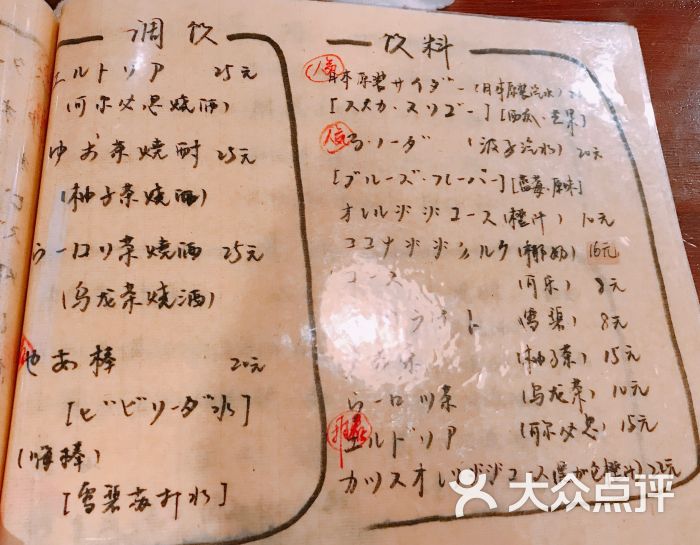 调饮
エルトリア 25元
(可尔必思烧酒)
ゆお茶焼酎 25元
(柚子茶烧酒)
らーロリ茶焼酒 25元
(乌龙茶烧酒)
お棒 20元
[ビビリーダ水]
(嗨棒)
[雪碧苏打水]
饮料
人気
日本原装サイダー(日本原装汽水)
[ススカ・スリゴー][西瓜・芒果]
人気
ろ・ノーダー (波子汽水) 20元
[ブルーズ・フレーバー][蓝莓・原味]
オレルジジコース(橙汁) 10元
ココナジジノルク(椰奶) 16元
コース (可乐) 8元
ラオト (雪碧) 8元
(柚子茶) 15元
らーロリ茶 (乌龙茶) 10元
エルドリア (可尔必思) 15元
カツスオレジジジコース 橙汁) 22元
大众点评